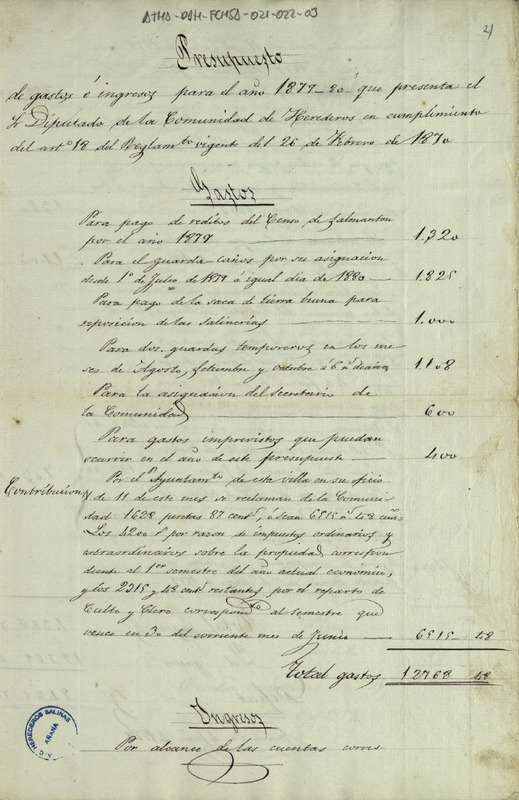 ATHA-DAH-FCMSA-021-022-09
21
Presupuesto
de gastos é ingresos para el año 1879-80 que presenta el
Sr Diputado de la Comunidad de Herederos en cumplimiento
del artº 18 del Reglamto vigente del 26 de Febrero de 1870
Gastos
Para pago de reditos del Censo de Salmanton
por el año 1879 1.320
Para el guarda caños por su asignacion
desde 1º de Julio de 1879 á igual dia de 1880 1.825
Para pago de la saca de tierra buena para
reposicion de las salinerías 1.000
Para dos guardas temporeros en los me
ses de Agosto, Setiembre y octubre á 6 rs diarios 1.108
Para la asignacion del Secretario de
la Comunidad 600
Para gastos imprevistos que puedan
ocurrir en el año de este presupuesto 400
Contribucion
Por el Ayuntamto de esta villa en su oficio
de 11 de este mes se reclaman de la Comuni
dad 1628 pesetas 87 centº, ó sean 6515 rs 48 cens
Los 4200 rs por razon de impuestos ordinarios y
extraordinarios sobre la propiedad, correspon
diente al 1er semestre del año actual económico,
y los 2315 y 48 centº restantes por el reparto de
Culto y Clero correspondte al semestre que
vence en 30 del corriente mes de Junio 6515-48
Total gastos 12768 48
Ingresos
Por alcance de las cuentas corres-
HEREDEROS SALINAS
AÑANA